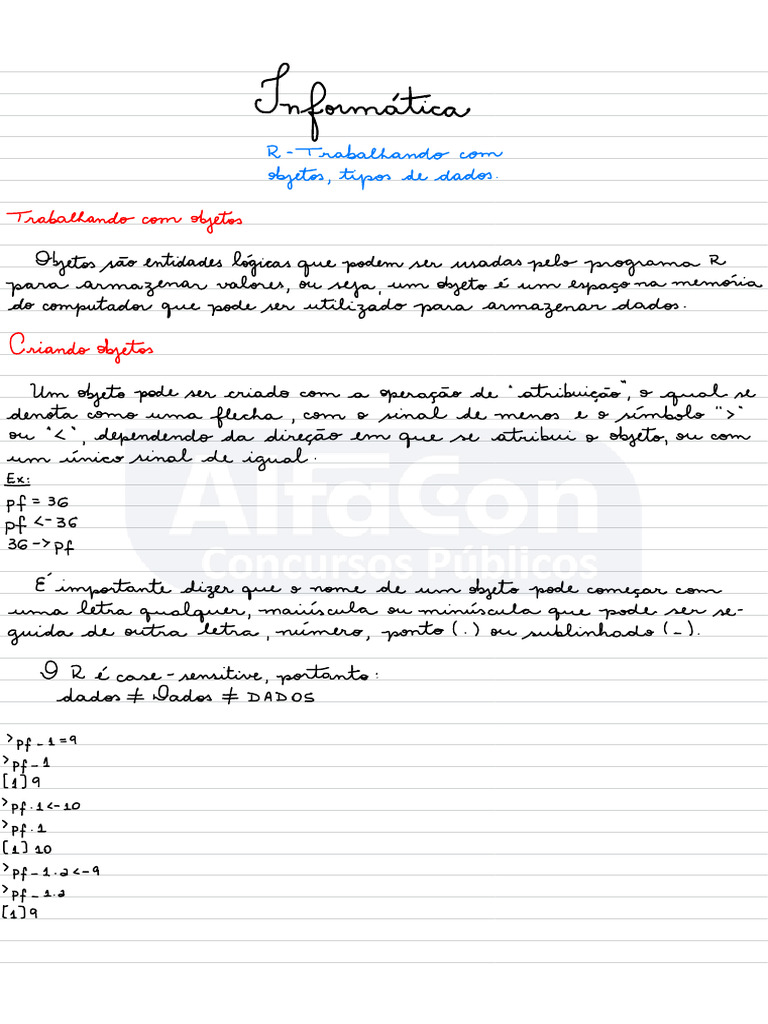 Informática
R - Trabalhando com
objetos, tipos de dados.
Trabalhando com objetos
Objetos são entidades lógicas que podem ser usadas pelo programa R
para armazenar valores, ou seja, um objeto é um espaço na memória
do computador que pode ser utilizado para armazenar dados.
Criando objetos
Um objeto pode ser criado com a operação de "atribuição", o qual se
denota como uma flecha, com o sinal de menos e o símbolo ">"
ou "<", dependendo da direção em que se atribui o objeto, ou com
um único sinal de igual.
Ex:
pf = 36
pf <- 36
36 -> pf
AlfaCon
Concursos Públicos
É importante dizer que o nome de um objeto pode começar com
uma letra qualquer, maiúscula ou minúscula que pode ser se-
guida de outra letra, número, ponto (.) ou sublinhado (_).
O R é case-sensitive, portanto:
dados ≠ Dados ≠ DADOS
>pf_1=9
>pf_1
[1]9
>pf.1<-10
>pf.1
[1]10
>pf_1.2<-9
>pf_1.2
[1]9